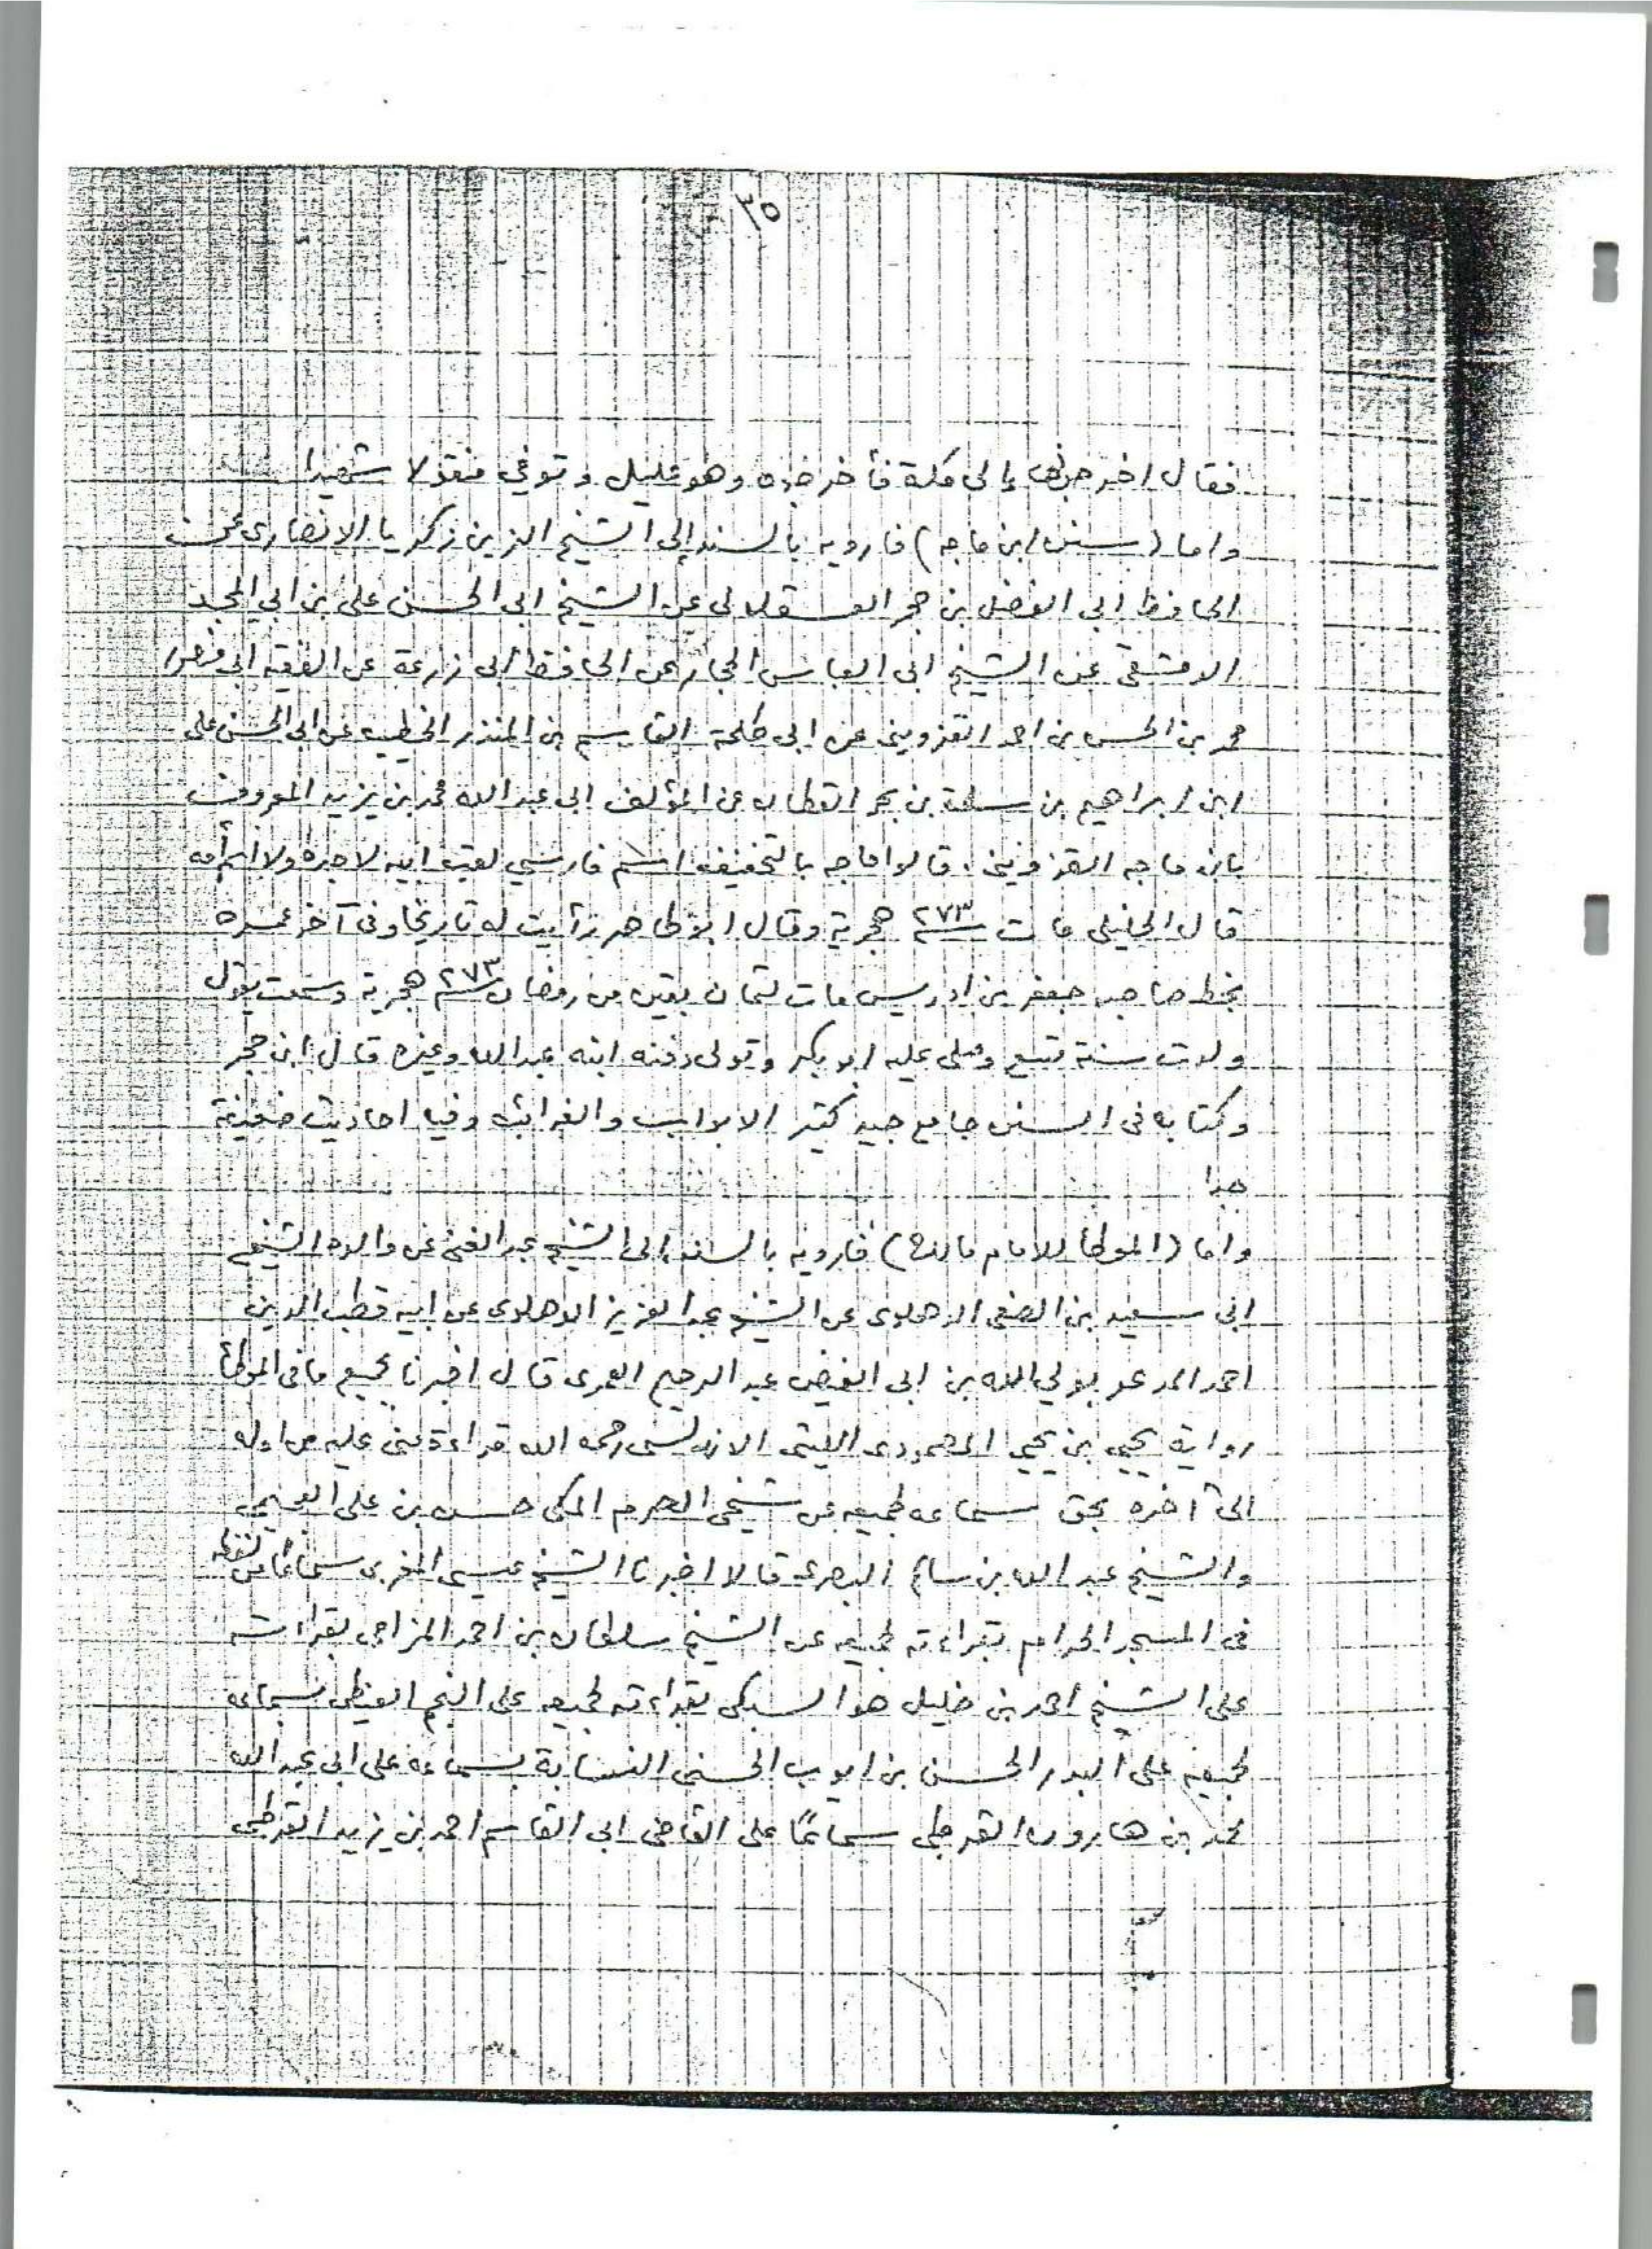 ٣٥
فقال اخرجوني الى مكة فأخرجوه وهو عليل وتوفي مقتولا شهيدا
واما (سنن ابن ماجه) فارويه بالسند إلى الشيخ الزين زكريا الانصارى عن
الحافظ ابى الفضل بن حجر العسقلانى عن الشيخ ابى الحسن على بن ابي المجد
الدمشقى عن الشيخ ابى العباس الحجار عن الحافظ ابى زارعة عن الفقيه ابى منصور
محمد بن الحسن بن احمد القزوينى عن ابى طلحة القاسم بن المنذر الخطيب عن ابى الحسن على
ابن ابراهيم بن سلمة بن بحر القطان عن المؤلف ابى عبد الله محمد بن يزيد المعروف
بابن ماجه القزوينى، قالوا ماجه بالتخفيف اسم فارسي لقب ابيه لا جده ولا أم امه
قال الخليلى مات سنة ٢٧٣ هجرية وقال ابن طاهر رأيت له تاريخا وفى آخره
بخط صاحبه جعفر بن ادريس مات لثمان بقين من رمضان سنة ٢٧٣ هجرية وسمعت يقول
ولدت سنة تسع وصلى عليه ابو بكر وتولى دفنه ابنه عبد الله وغيره قال ابن حجر
وكتابه فى السنن جامع جيد كثير الابواب والغرائب وفيه احاديث ضعيفة
جدا
واما (الموطأ للامام مالك) فارويه بالسند الى الشيخ عبد الغنى عن والده الشيخ
ابى سعيد بن الصفى الدهلوى عن الشيخ عبد العزيز الدهلوى عن ابيه قطب الدين
احمد المدعو بولي الله بن ابى الفيض عبد الرحيم العمرى قال اخبرنا بجميع ما فى الموطأ
رواية يحيى بن يحيى المصمودى الليثى الاندلسى رحمه الله قراءة منى عليه من اوله
الى آخره بحق سماعه لجميعه عن شيخى الحرم المكى حسن بن على العجيمى
والشيخ عبد الله بن سالم البصرى قالا اخبرنا الشيخ عيسى المغربى سماعا من لفظه
فى المسجد الحرام بقراءته لجميعه عن الشيخ سلطان بن احمد المزاحى بقراءته
على الشيخ احمد بن خليل هو السبكى بقراءته لجميعه على النجم الغيطى بسماعه
لجميعه على البدر الحسن بن ايوب الحسنى النسابة بسماعه على ابى عبد الله
محمد بن هارون القرطبى سماعًا على القاضى ابى القاسم احمد بن يزيد القرطبى